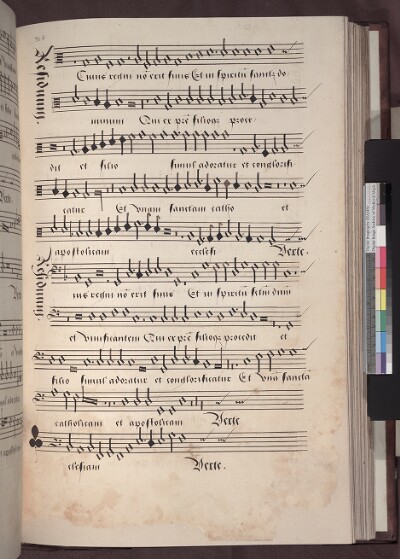 Cuius regni nō erit finis Et in spiritū sanctū do
minum Qui ex pr̄e filioq; proce
dit et filio simul adoratur et conglorifi
catur Et Unam sanctam catho et
apostolicam ecclesi Verte.
ius regni nō erit finis Et in spiritū sctū dnm̄
et vivificantem Qui ex pr̄e filioq; procedit et
filio simul adoratur et conglorificatur Et unā sanctā
catholicam et apostolicam Verte
eclesiam Verte.